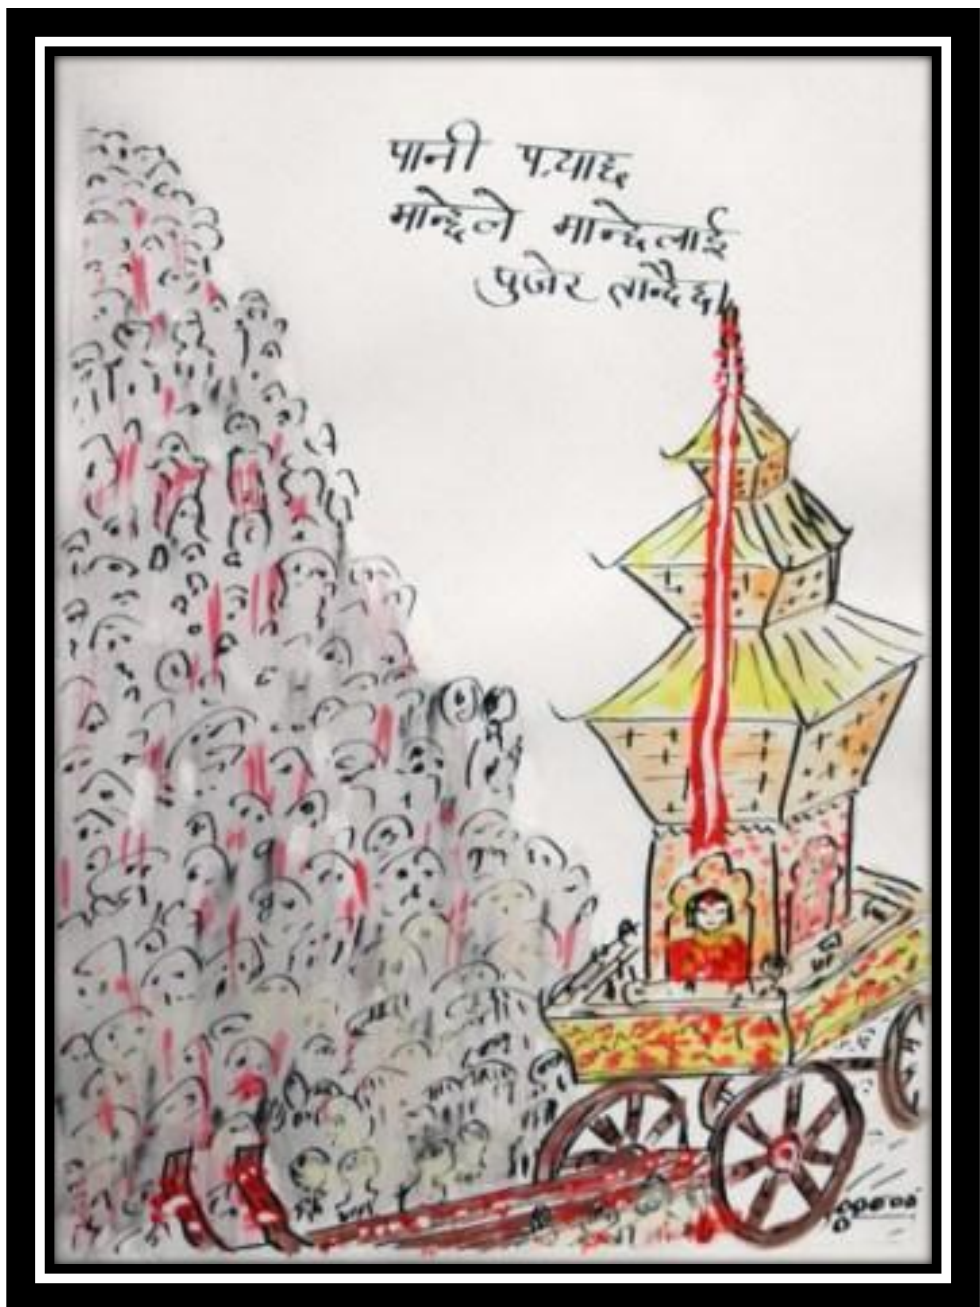 पानी पर्‍याछ
मान्छेले मान्छेलाई
पुजेर तान्दैछ।